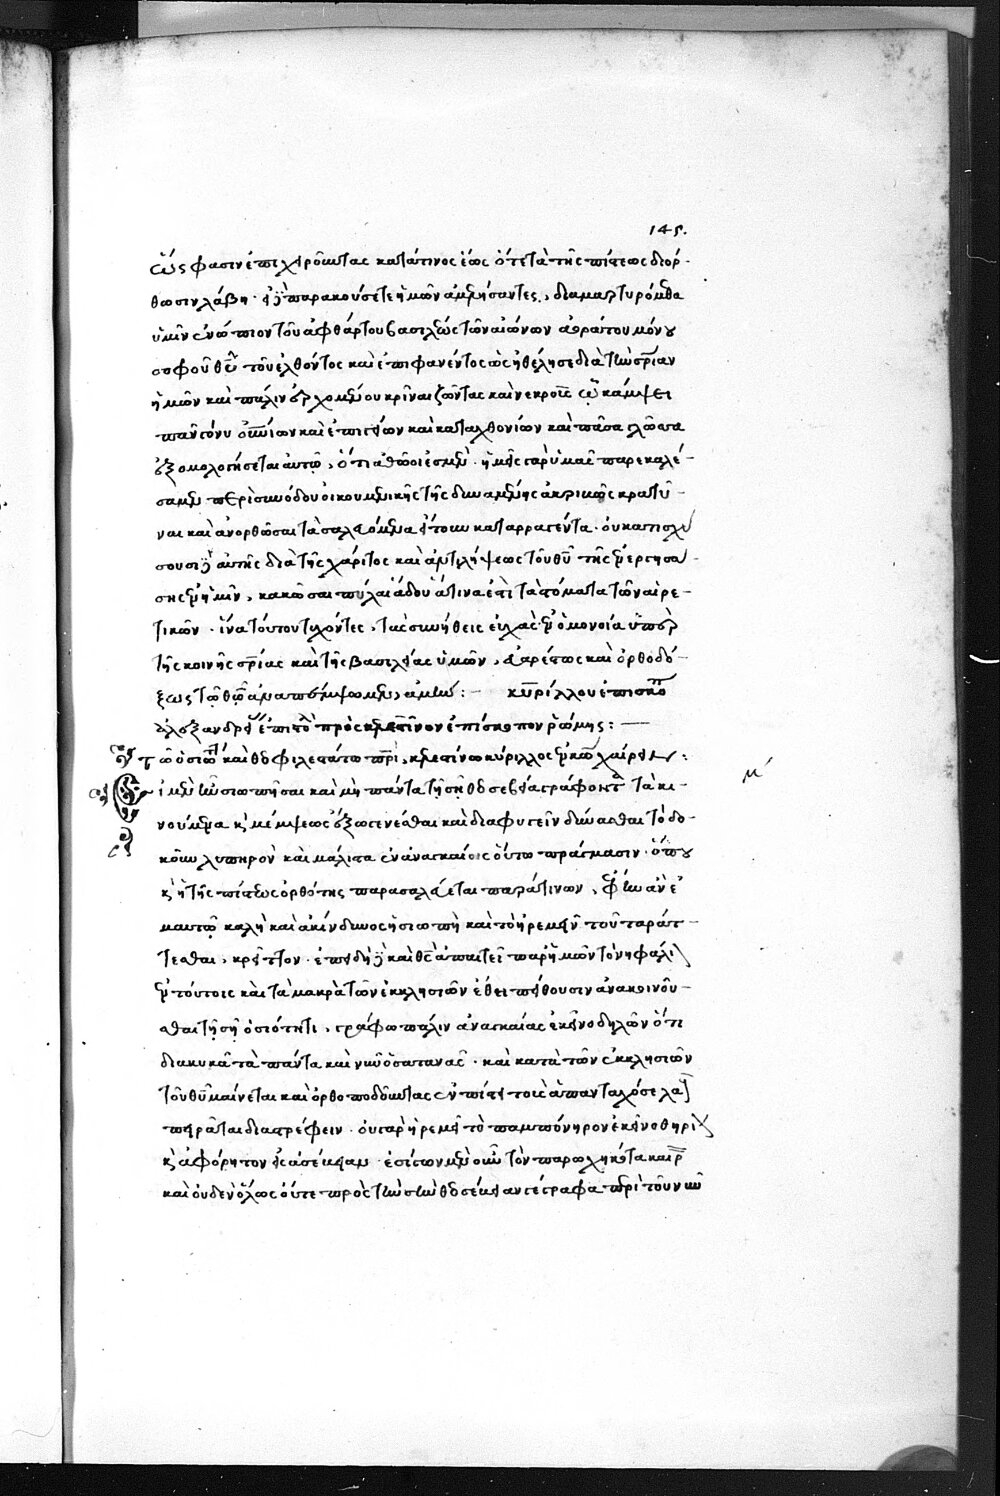 145.
ὥς φασιν ἐπιχειροῦντας κατά τινος ἕως ὅτε τὰ τῆς πίστεως διόρ-
θωσιν λάβη · εἰ δὲ παρακούσετε ἡμῶν ἀμελήσαντες, διαμαρτυρόμεθα
ὑμῖν ἐνώπιον τοῦ ἀφθάρτου βασιλέως τῶν αἰώνων ἀοράτου μόνου
σοφοῦ θεοῦ τοῦ ἐλθόντος καὶ ἐπιφανέντος ὡς ἠθέλησε διὰ τὴν σρίαν
ἡμῶν καὶ πάλιν ἐρχομένου κρῖναι ζῶντας καὶ νεκροὺς ᾧ κάμψει
πᾶν γόνυ ἐπουνίων καὶ ἐπιγείων καὶ καταχθονίων καὶ πᾶσα γλῶσσα
ἐξομολογήσεται αὐτῷ, ὅτι ἀθῷοι ἐσμὲν · ἡμεῖς γὰρ ὑμᾶς παρεκαλέ-
σαμεν περὶ συνόδου οἰκουμενικῆς τῆς δυναμένης ἀκριβῶς κρατῦ-
ναι καὶ ἀνορθῶσαι τὰ σαλευόμενα ἤγουν καταρραγέντα · οὐ κατισχύ
σουσι δὲ αὐτῆς διὰ τῆς χάριτος καὶ ἀντιλήψεως τοῦ θυ τῆς ἐνεργησά
σης ἐν ἡμῖν, κακῶσαι πύλαι ἅδου ἅτινα ἐστὶ τὰ στόματα τῶν αἱρε-
τικῶν · ἵνα τούτου τυχόντες, τὰς συνήθεις εὐχὰς ἐν ὁμονοία ὑπὲρ
τῆς κοινῆς σρίας καὶ τῆς βασιλείας ὑμῶν, εὐαρέστως καὶ ὀρθοδό-
ξως τῷ θῷ ἀναπέμψωμεν, ἀμήν : – κυρίλλου ἐπισκό
ἀλεξανδρείας ἐπιστολὴ πρὸς κελεστῖνον ἐπίσκοπον ῥώμης : —
τῶ ὁσιωτά καὶ θεοφιλεστάτω πρὶ, κελεστίνω κύριλλος ἐν κω χαίρειν :
Εἰ μὲν ἦν σιωπῆσαι καὶ μὴ πάντα τῇ σῇ θεοσεβεία γράφοντα τὰ κι-
νούμενα κ μέμψεως ἔξω γενέσθαι καὶ διαφυγεῖν δύνασθαι τὸ δο-
κοῦν λυπηρὸν καὶ μάλιστα ἐν ἀναγκαίοις οὕτω πράγμασιν · ὅπου
κ ἡ τῆς πίστεως ὀρθότης παρασαλεύεται παρά τινων, ἔφην ἂν ἐ
μαυτῷ καλὴ καὶ ἀκίνδυνος ἡ σιωπὴ καὶ τὸ ἠρεμεῖν τοῦ ταράτ-
τεσθαι, κρεῖττον · ἐπειδὴ δὲ καὶ θς ἀπαιτεῖ παρ' ἡμῶν τὸ νηφάλι
ἐν τούτοις καὶ τὰ μακρὰ τῶν ἐκκλησιῶν ἔθει πείθουσιν ἀνακοινοῦ-
σθαι τῇ σῇ ὁσιότητι, γράφω πάλιν ἀναγκαίας ἐκεῖνο δηλῶν ὅτι
διακυκᾶ τὰ πάντα καὶ νῦν ὁ σατανᾶς · καὶ κατὰ τῶν ἐκκλησιῶν
τοῦ θυ μαίνεται καὶ ὀρθοποδοῦντας ἐν πίστει τοὺς ἁπανταχόσε λα
πειρᾶται διαστρέφειν · οὐ γὰρ ἠρεμεῖ τὸ παμπόνηρον ἐκεῖνο θηρί
κ ἀφόρητον εἰς ἀσέβειαν · ἐσίγων μὲν οὖν τὸν παρωχηκότα καιρ
καὶ οὐδὲν ὅλως οὔτε πρὸς τὴν σὴν θεοσέβειαν γέγραφα περὶ τοῦ νῦν
μʹ